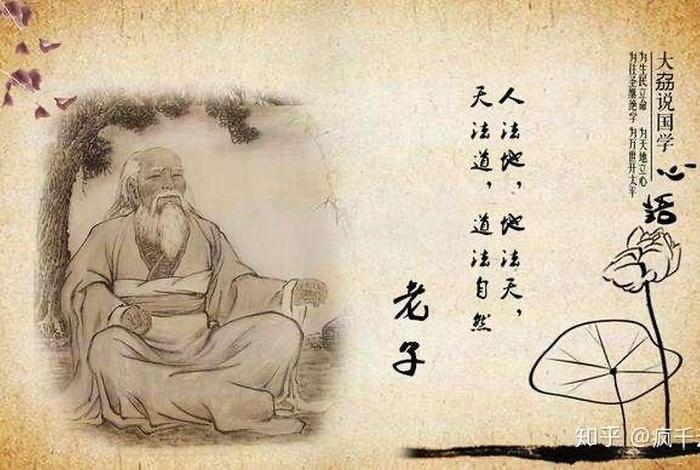 大荔说国学
为生民立命 为天地立心
为往圣继绝学 为万世开太平
心语
人法地，地法天，
天法道，道法自然
老子
知乎 @疯千